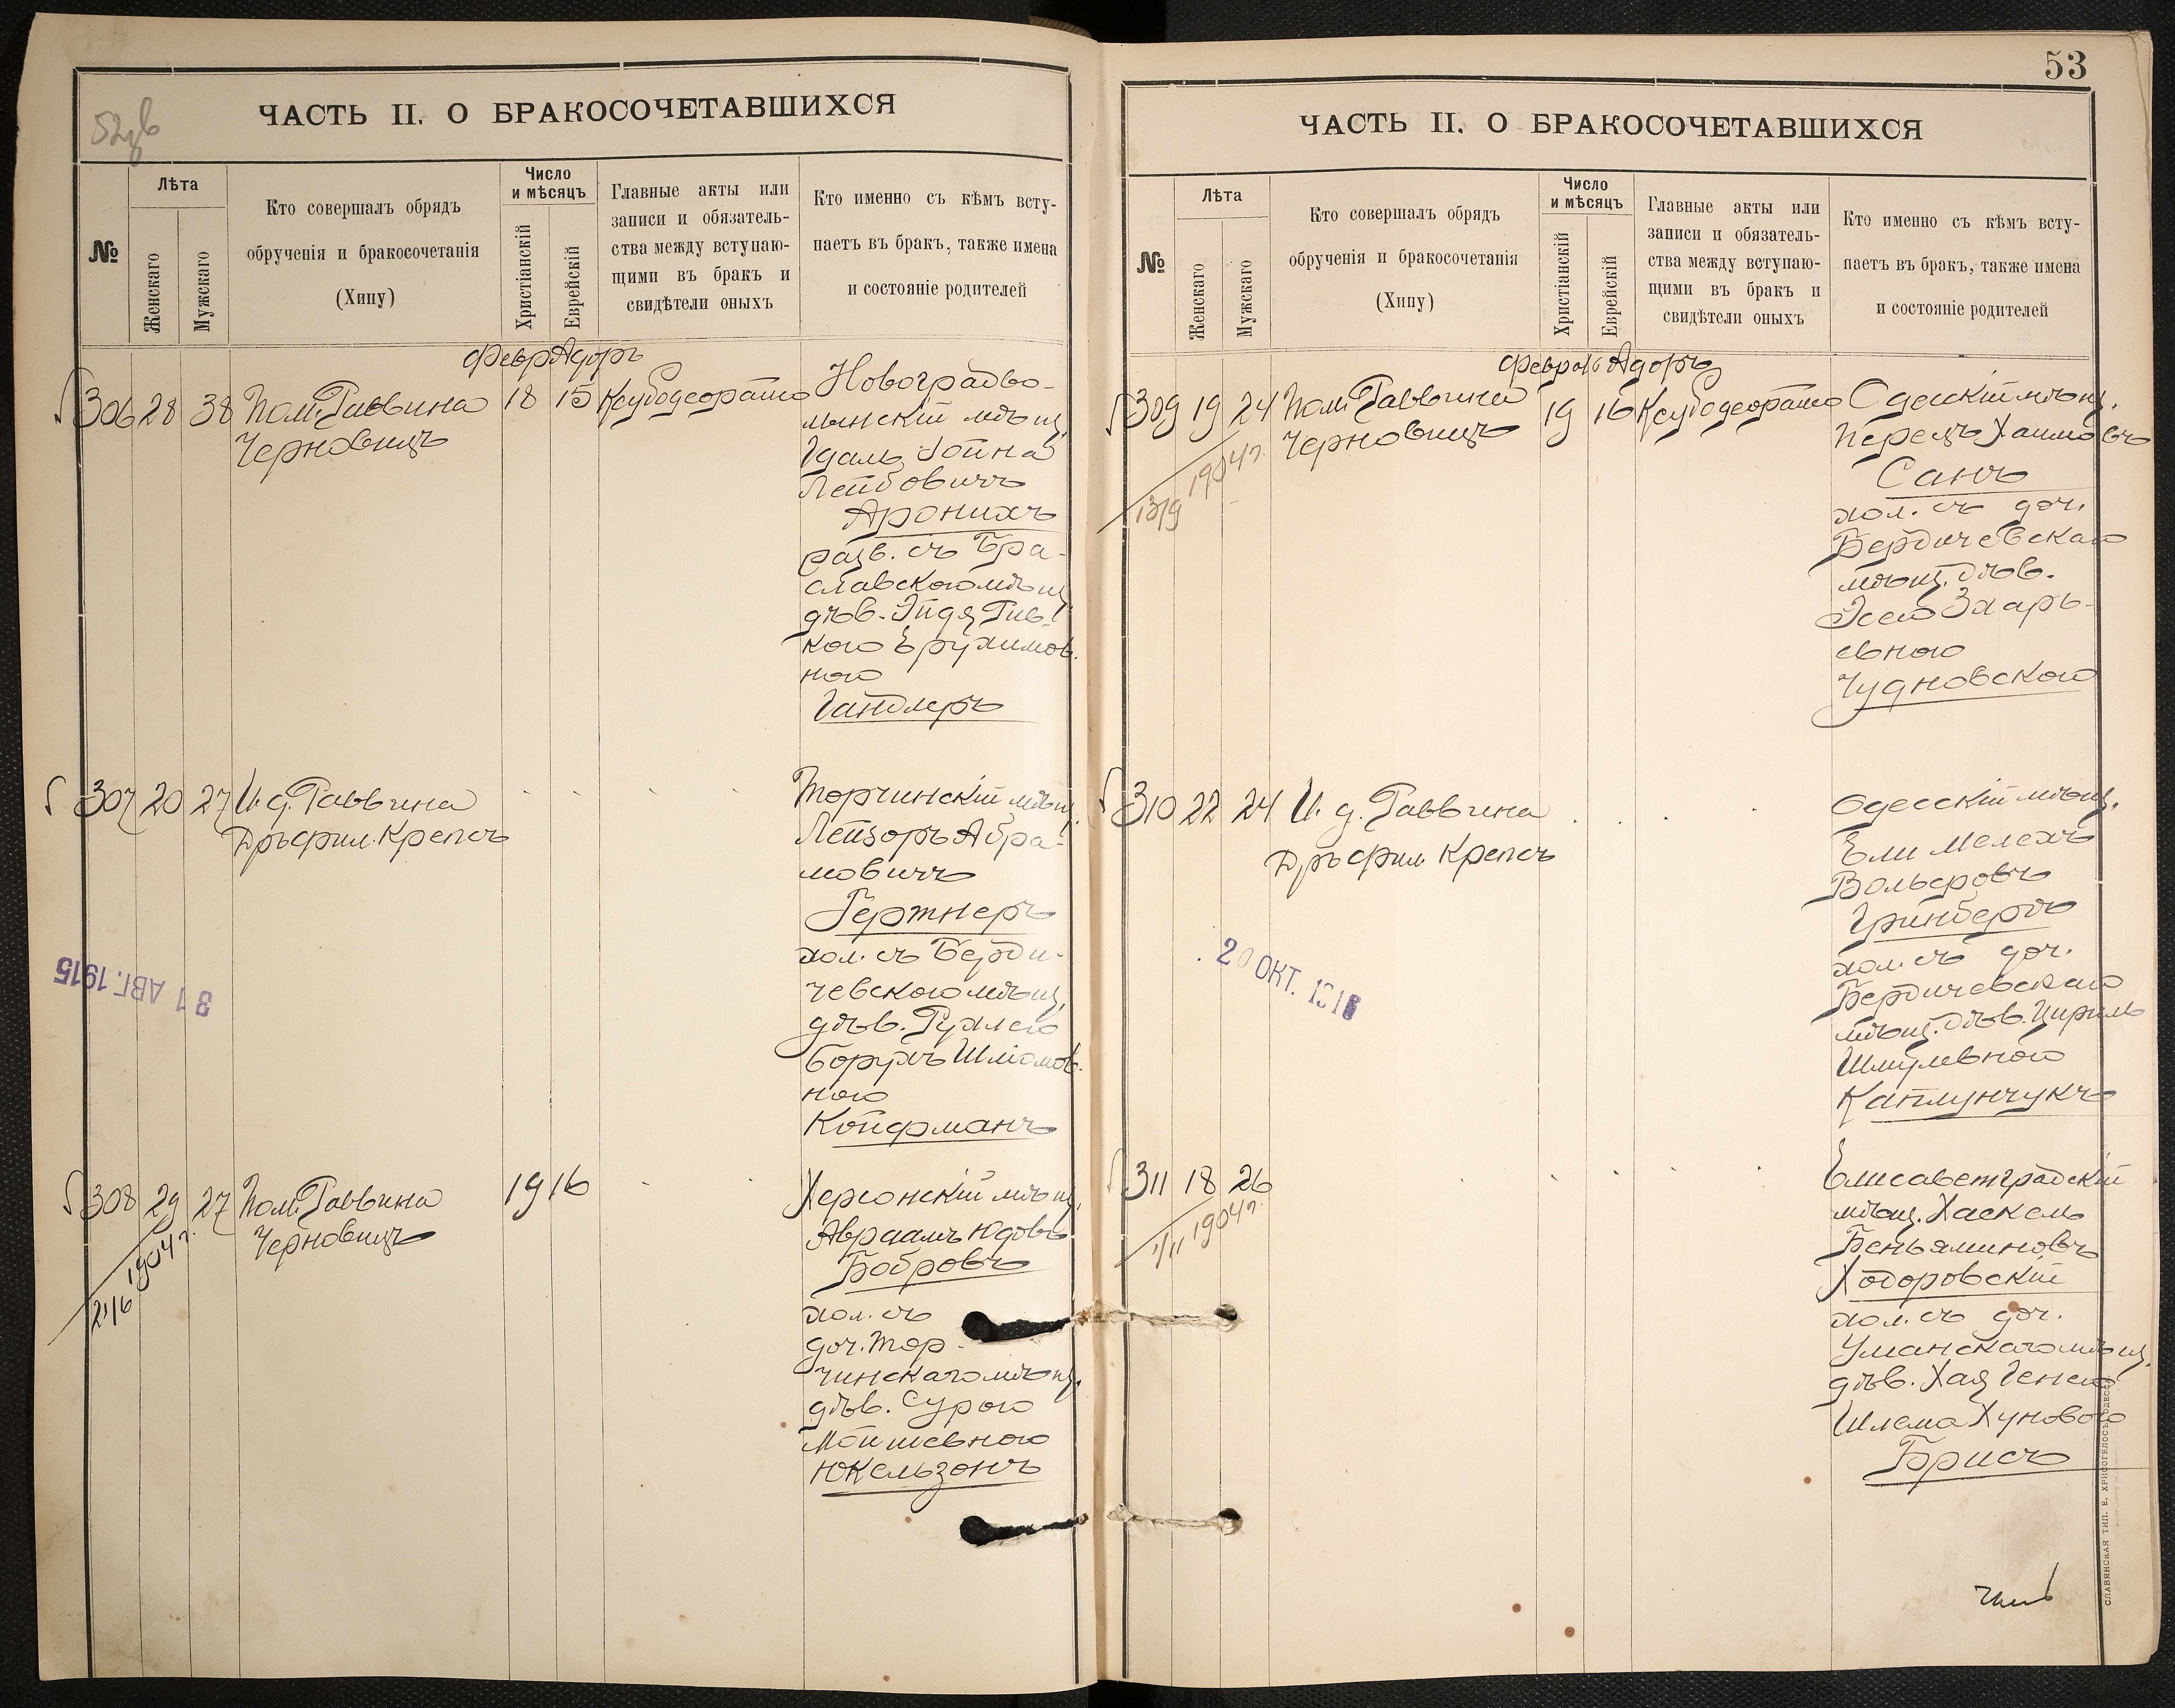 52об
ЧАСТЬ II. О БРАКОСОЧЕТАВШИХСЯ
№
Лѣта
Женскаго
Мужскаго
Кто совершалъ обрядъ
обрученія и бракосочетанія
(Хипу)
Число
и мѣсяцъ
Христіанскій
Еврейскій
Главные акты или
записи и обязатель-
ства между вступаю-
щими въ бракъ и
свидѣтели оныхъ
Кто именно съ кѣмъ всту-
паетъ въ бракъ, также имена
и состояніе родителей
Февр Адоръ
306 28 38 Пом. Раввина 18 15
Черновицъ
Новоградво-
лынскій мѣщ.
Удаль Іойна
Лейбовичъ
Аронихъ
разв. съ Бра-
славскою мѣщ.
дѣв. Эйдя Рив-
кою Ерухимов-
ною
Гандлеръ
307 20 27 И. д. Раввина
Дръ фил. Крепсъ
Торчинскій мѣщ.
Лейзоръ Абра-
мовичъ
Гертнеръ
хол. съ Берди-
чевскою мѣщ.
дѣв. Рухлею
Борухъ Шліомов-
ною
Койфманъ
31 АВГ. 1915
308 29 27 Пом. Раввина 19 16
Черновицъ
21/6 1904 г.
Херсонскій мѣщ.
Авраамъ Юдовъ
Бобровъ
хол. съ
доч. Тор-
чинскаго мѣщ.
дѣв. Сурою
Мойшевною
Юкельзонъ
53
ЧАСТЬ II. О БРАКОСОЧЕТАВШИХСЯ
№
Лѣта
Женскаго
Мужскаго
Кто совершалъ обрядъ
обрученія и бракосочетанія
(Хипу)
Число
и мѣсяцъ
Христіанскій
Еврейскій
Главные акты или
записи и обязатель-
ства между вступаю-
щими въ бракъ и
свидѣтели оныхъ
Кто именно съ кѣмъ всту-
паетъ въ бракъ, также имена
и состояніе родителей
Февраль Адоръ
309 19 24 Пом. Раввина 19 16
Черновицъ
13/9 1904 г.
Одесскій мѣщ.
Перецъ Хаимовъ
Санъ
хол. съ доч.
Бердичевскаго
мѣщ. дѣв.
Эсею Зхарь-
евною
Чудновскою
310 22 24 И. д. Раввина
Дръ фил. Крепсъ
Одесскій мѣщ.
Ели Мелехъ
Вольфовъ
Гринбергъ
хол. съ доч.
Бердичевскаго
мѣщ. дѣв. Цирель
Шмулевною
Каплунчукъ
20 ОКТ. 191
311 18 26
1/11 1904 г.
Елисаветградскій
мѣщ. Хаскель
Беньяминовъ
Ходоровскій
хол. съ доч.
Уманскаго мѣщ.
дѣв. Хая Генею
Шлема Хуновою
Брисъ
СЛАВЯНСКАЯ ТИП. Е. ХРИСОГЕЛОСЪ, ОДЕССА.